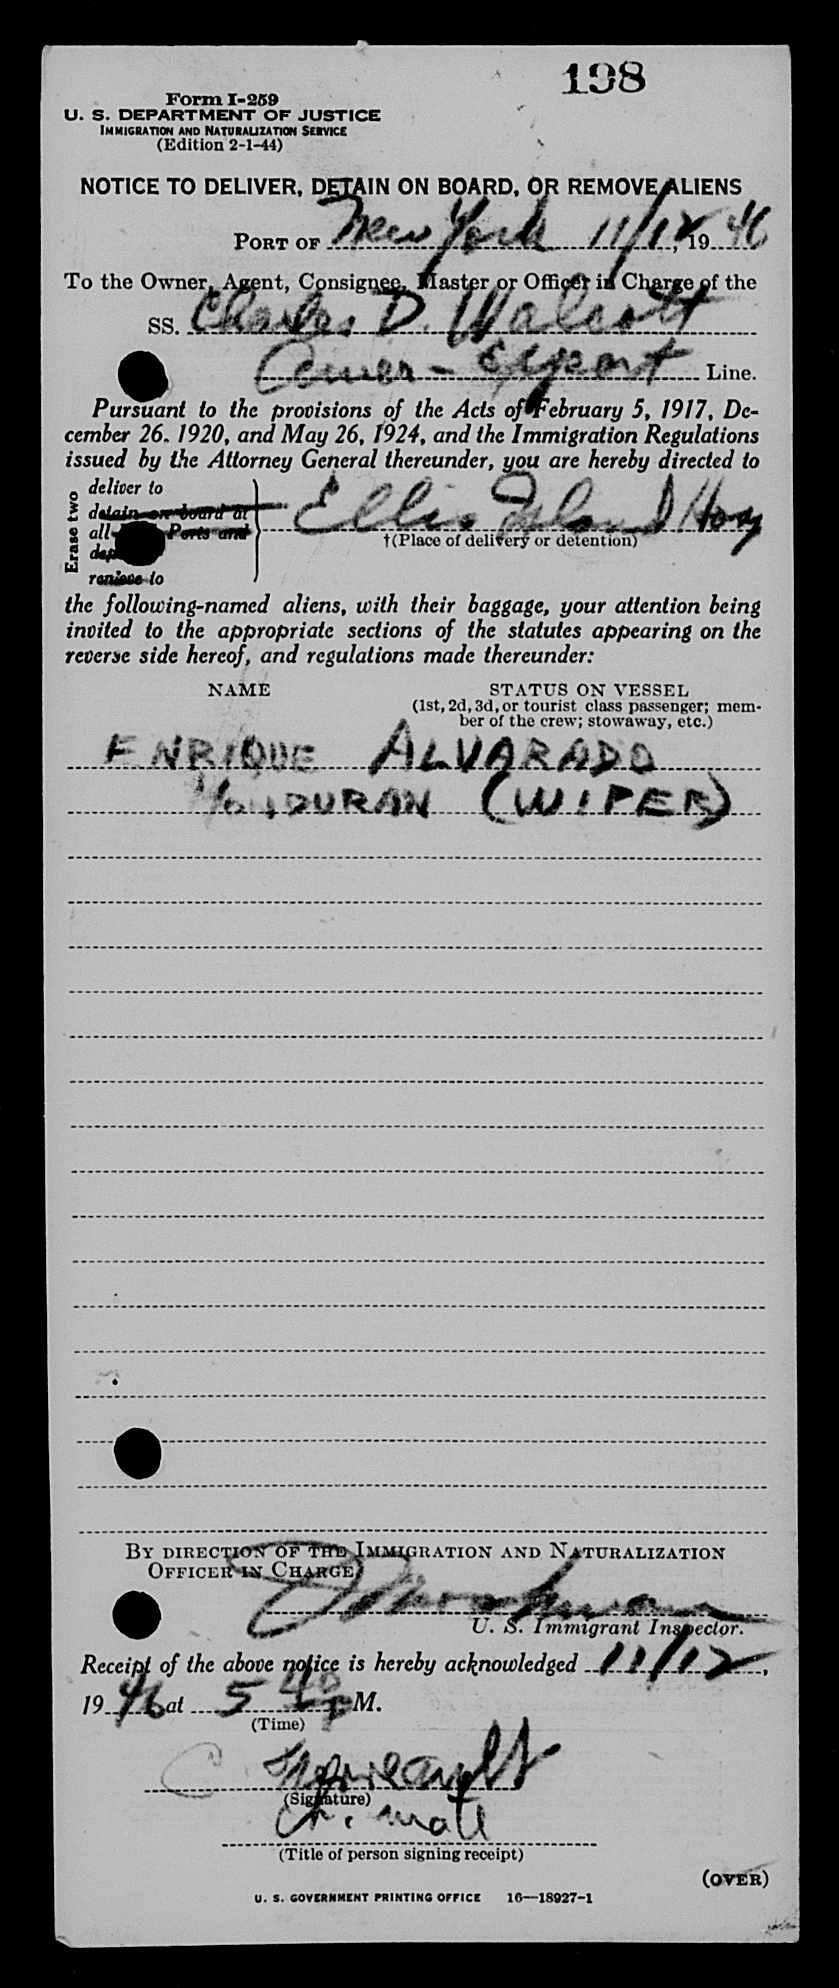 198
Form I-259
U. S. DEPARTMENT OF JUSTICE
IMMIGRATION AND NATURALIZATION SERVICE
(Edition 2-1-44)
NOTICE TO DELIVER, DETAIN ON BOARD, OR REMOVE ALIENS
PORT OF New York 11/12, 1946
To the Owner, Agent, Consignee, Master or Officer in Charge of the
SS. Charles D. Walcott
Amer-Export Line.
Pursuant to the provisions of the Acts of February 5, 1917, De-
cember 26, 1920, and May 26, 1924, and the Immigration Regulations
issued by the Attorney General thereunder, you are hereby directed to
Erase two
deliver to
detain on board at
all Ports and
remove to
Ellis Island Hosp
†(Place of delivery or detention)
the following-named aliens, with their baggage, your attention being
invited to the appropriate sections of the statutes appearing on the
reverse side hereof, and regulations made thereunder:
NAME STATUS ON VESSEL
(1st, 2d, 3d, or tourist class passenger; mem-
ber of the crew; stowaway, etc.)
ENRIQUE ALVARADO
HONDURAN (WIPER)
BY DIRECTION OF THE IMMIGRATION AND NATURALIZATION
OFFICER IN CHARGE
U. S. Immigrant Inspector.
Receipt of the above notice is hereby acknowledged 11/12,
1946 at 5 40 P M.
(Time)
(Signature)
Ch. mate
(Title of person signing receipt)
(OVER)
U. S. GOVERNMENT PRINTING OFFICE 16—18927-1